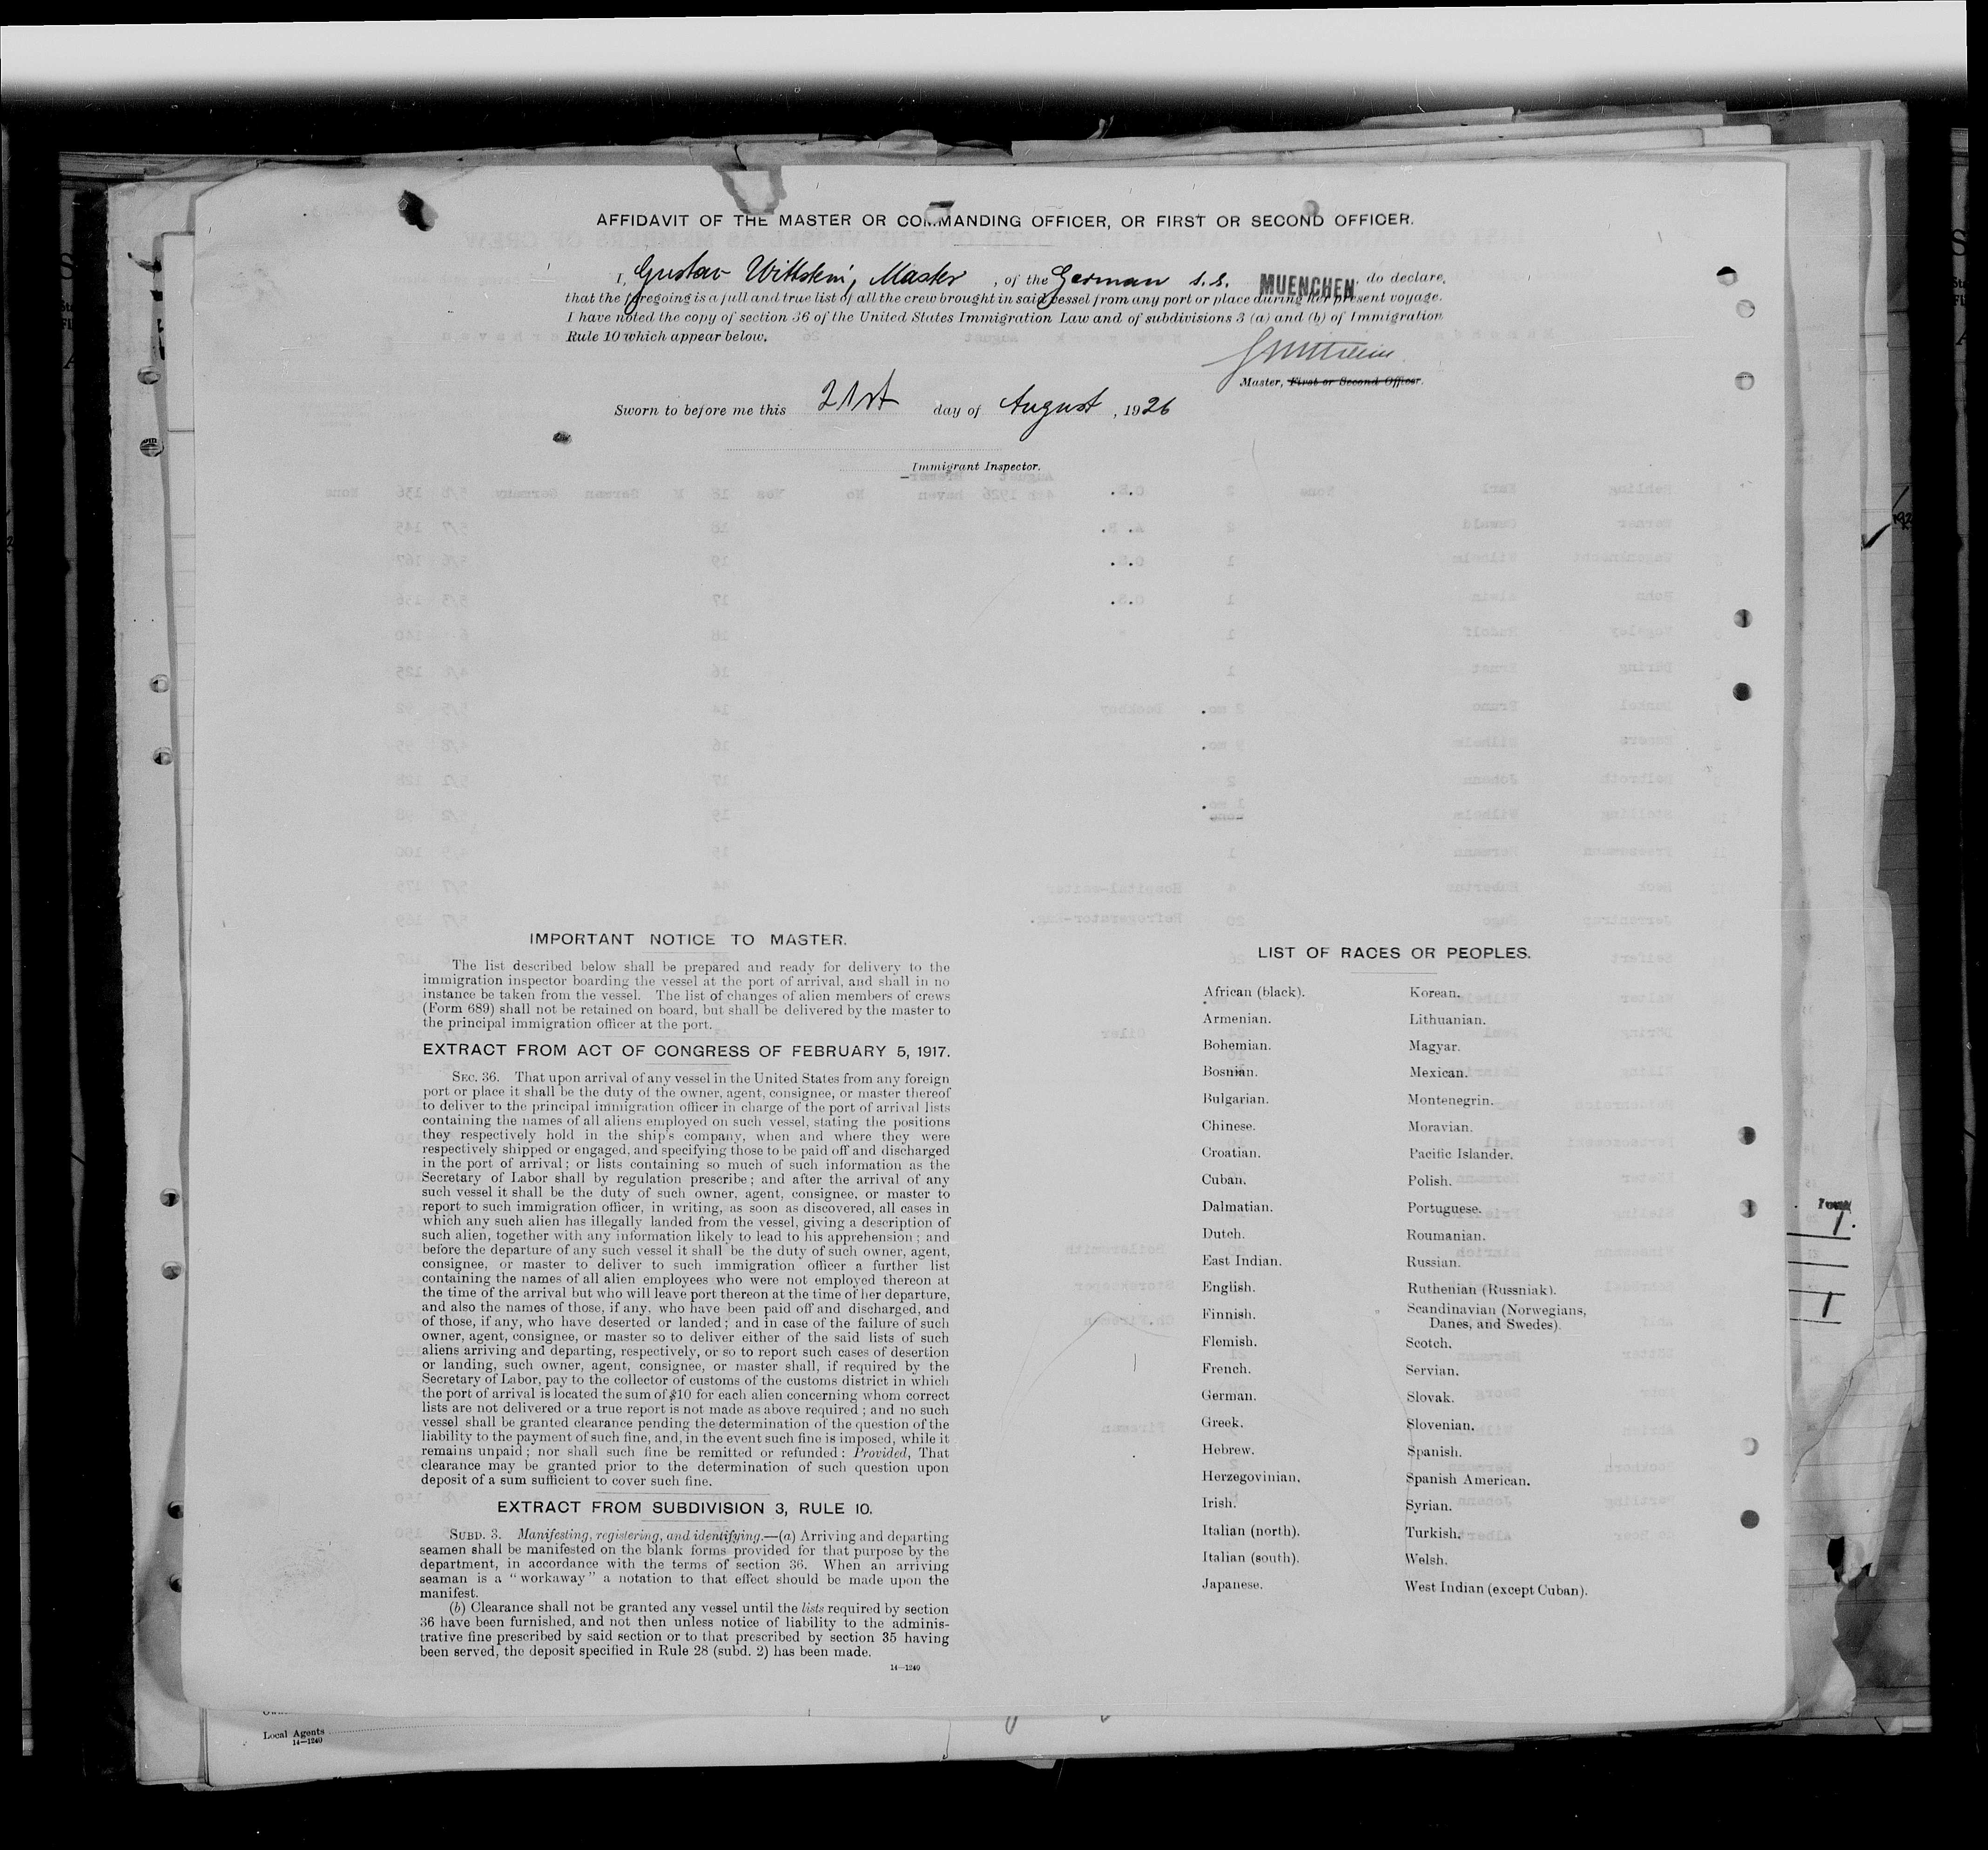 AFFIDAVIT OF THE MASTER OR COMMANDING OFFICER, OR FIRST OR SECOND OFFICER.
I, Gustav Wittstein, Master, of the German s.s. MUENCHEN, do declare,
that the foregoing is a full and true list of all the crew brought in said vessel from any port or place during her present voyage.
I have noted the copy of section 36 of the United States Immigration Law and of subdivisions 3 (a) and (b) of Immigration
Rule 10 which appear below.
Master, First or Second Officer.
Sworn to before me this 21st day of August, 1926
Immigrant Inspector.
IMPORTANT NOTICE TO MASTER.
The list described below shall be prepared and ready for delivery to the
immigration inspector boarding the vessel at the port of arrival, and shall in no
instance be taken from the vessel. The list of changes of alien members of crews
(Form 689) shall not be retained on board, but shall be delivered by the master to
the principal immigration officer at the port.
EXTRACT FROM ACT OF CONGRESS OF FEBRUARY 5, 1917.
SEC. 36. That upon arrival of any vessel in the United States from any foreign
port or place it shall be the duty of the owner, agent, consignee, or master thereof
to deliver to the principal immigration officer in charge of the port of arrival lists
containing the names of all aliens employed on such vessel, stating the positions
they respectively hold in the ship's company, when and where they were
respectively shipped or engaged, and specifying those to be paid off and discharged
in the port of arrival; or lists containing so much of such information as the
Secretary of Labor shall by regulation prescribe; and after the arrival of any
such vessel it shall be the duty of such owner, agent, consignee, or master to
report to such immigration officer, in writing, as soon as discovered, all cases in
which any such alien has illegally landed from the vessel, giving a description of
such alien, together with any information likely to lead to his apprehension; and
before the departure of any such vessel it shall be the duty of such owner, agent,
consignee, or master to deliver to such immigration officer a further list
containing the names of all alien employees who were not employed thereon at
the time of the arrival but who will leave port thereon at the time of her departure,
and also the names of those, if any, who have been paid off and discharged, and
of those, if any, who have deserted or landed; and in case of the failure of such
owner, agent, consignee, or master so to deliver either of the said lists of such
aliens arriving and departing, respectively, or so to report such cases of desertion
or landing, such owner, agent, consignee, or master shall, if required by the
Secretary of Labor, pay to the collector of customs of the customs district in which
the port of arrival is located the sum of $10 for each alien concerning whom correct
lists are not delivered or a true report is not made as above required; and no such
vessel shall be granted clearance pending the determination of the question of the
liability to the payment of such fine, and, in the event such fine is imposed, while it
remains unpaid; nor shall such fine be remitted or refunded: Provided, That
clearance may be granted prior to the determination of such question upon
deposit of a sum sufficient to cover such fine.
EXTRACT FROM SUBDIVISION 3, RULE 10.
SUBD. 3. Manifesting, registering, and identifying.—(a) Arriving and departing
seamen shall be manifested on the blank forms provided for that purpose by the
department, in accordance with the terms of section 36. When an arriving
seaman is a "workaway" a notation to that effect should be made upon the
manifest.
(b) Clearance shall not be granted any vessel until the lists required by section
36 have been furnished, and not then unless notice of liability to the adminis-
trative fine prescribed by said section or to that prescribed by section 35 having
been served, the deposit specified in Rule 28 (subd. 2) has been made.
14—1240
LIST OF RACES OR PEOPLES.
African (black).
Armenian.
Bohemian.
Bosnian.
Bulgarian.
Chinese.
Croatian.
Cuban.
Dalmatian.
Dutch.
East Indian.
English.
Finnish.
Flemish.
French.
German.
Greek.
Hebrew.
Herzegovinian.
Irish.
Italian (north).
Italian (south).
Japanese.
Korean.
Lithuanian.
Magyar.
Mexican.
Montenegrin.
Moravian.
Pacific Islander.
Polish.
Portuguese.
Roumanian.
Russian.
Ruthenian (Russniak).
Scandinavian (Norwegians,
Danes, and Swedes).
Scotch.
Servian.
Slovak.
Slovenian.
Spanish.
Spanish American.
Syrian.
Turkish.
Welsh.
West Indian (except Cuban).
Local Agents
14—1240